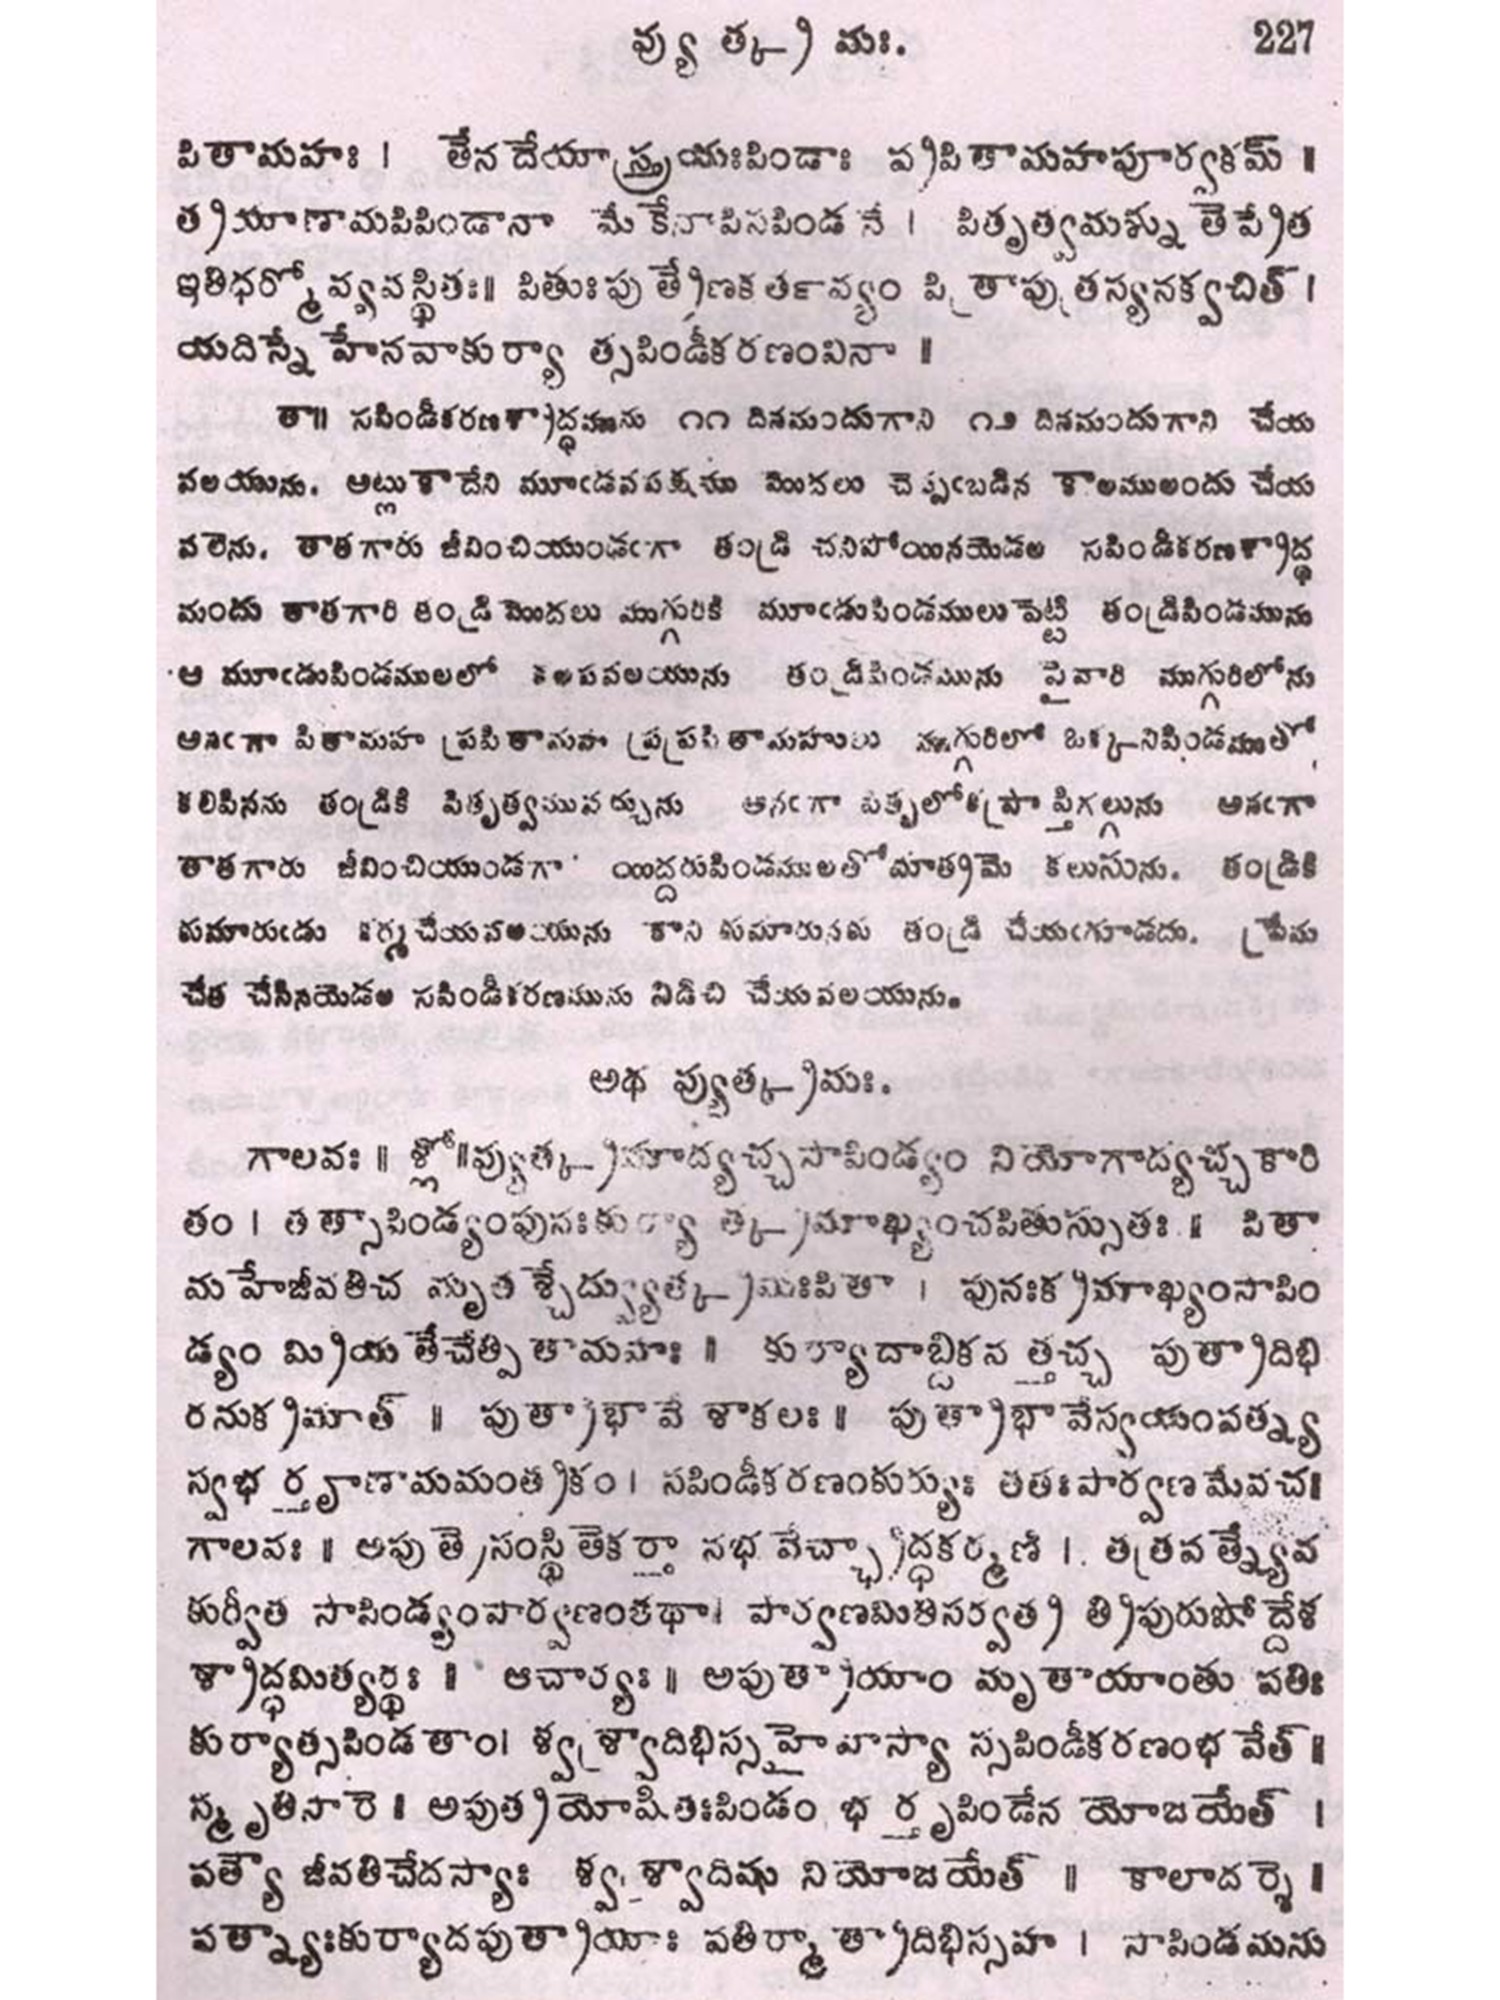 వ్యుత్క్రమః. 227
పితామహః । తేనదేయాస్త్రయఃపిండాః ప్రపితామహపూర్వకమ్ ॥
త్రయాణామపిపిండానా మేకేనాపిసపిండనే । పితృత్వమశ్ను తెప్రేత
ఇతిధర్మో వ్యవస్థితః॥ పితుఃపుత్రేణకర్తవ్యం పిత్రాపుత్రస్యనక్వచిత్ ।
యదిస్నేహేనవాకుర్యా త్సపిండీకరణంవినా ॥
తా॥ సపిండీకరణశ్రాద్ధమును ౧౧ దినమందుగాని ౧౨ దినమందుగాని చేయ
వలయును. అట్లు కాదేని మూఁడవపక్షము మొదలు చెప్పఁబడిన కాలములందు చేయ
వలెను. తాతగారు జీవించియుండఁగా తండ్రి చనిపోయినయెడల సపిండీకరణశ్రాద్ధ
మందు తాతగారి తండ్రి మొదలు ముగ్గురికి మూఁడుపిండములు పెట్టి తండ్రిపిండమును
ఆ మూఁడుపిండములలో కలపవలయును తండ్రిపిండమును పైవారి ముగ్గురిలోను
అనఁగా పితామహ ప్రపితామహ ప్రప్రపితామహులు ముగ్గురిలో ఒక్కనిపిండముతో
కలిపినను తండ్రికి పితృత్వమువచ్చును అనఁగా పితృలోకప్రాప్తిగల్గును అనఁగా
తాతగారు జీవించియుండగా యిద్దరుపిండములతోమాత్రమె కలుసును. తండ్రికి
కుమారుఁడు కర్మచేయవలయును కాని కుమారునకు తండ్రి చేయఁగూడదు. ప్రేమ
చేత చేసినయెడల సపిండీకరణమును విడిచి చేయవలయును.
అథ వ్యుత్క్రమః.
గాలవః ॥ శ్లో॥వ్యుత్క్రమాద్యచ్చసాపిండ్యం నియోగాద్యచ్చకారి
తం । తత్సాపిండ్యంపునఃకుర్యా త్క్రమాఖ్యంచపితుస్సుతః ॥ పితా
మహేజీవతిచ మృతశ్చేద్వ్యుత్క్రమఃపితా । పునఃక్రమాఖ్యంసాపిం
డ్యం మ్రియతేచేత్పితామహః ॥ కుర్యాదాబ్దికన త్తచ్చ పుత్రాదిభి
రనుక్రమాత్ ॥ పుత్రాభావే శాకలః ॥ పుత్రాభావేస్వయంపత్న్య
స్వభర్తౄణామమంత్రకం। సపిండీకరణంకుర్యుః తతఃపార్వణమేవచ॥
గాలవః ॥ అపుత్రెసంస్థితెకర్తా నభవేచ్ఛ్రాద్ధకర్మణి । తత్రపత్న్యేవ
కుర్వీత సాపిండ్యంపార్వణంతథా। పార్వణమితిసర్వత్ర త్రిపురుషోద్దేశ
శ్రాద్ధమిత్యర్థః ॥ ఆచార్యః ॥ అపుత్రాయాం మృతాయాంతు పతిః
కుర్యాత్సపిండతాం। శ్వశ్ర్వాదిభిస్సహైవాస్యా స్సపిండీకరణంభవేత్ ॥
స్మృతిసారె ॥ అపుత్రయోషితఃపిండం భర్తృపిండేన యోజయేత్ ।
పత్యౌ జీవతిచేదస్యాః శ్వశ్ర్వాదిషు నియోజయేత్ ॥ కాలాదర్శె ॥
పత్న్యాఃకుర్యాదపుత్రాయాః పతిర్మాత్రాదిభిస్సహ । సాపిండమను